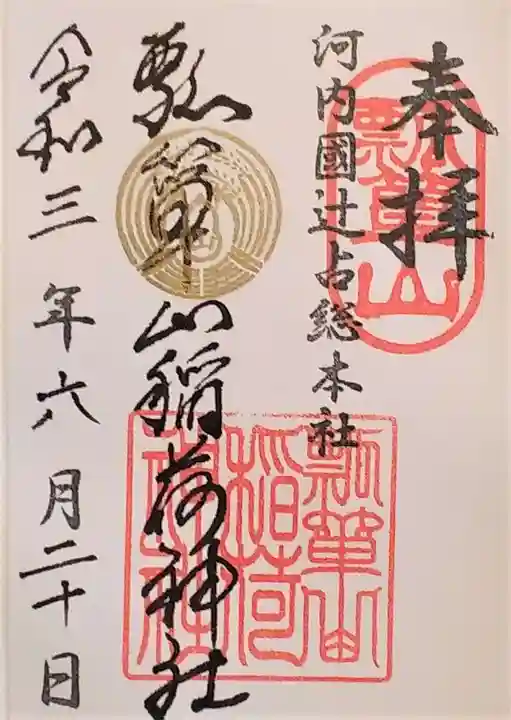 奉拝
瓢箪山
河内國辻占総本社
瓢箪山稲荷神社
瓢箪山
稲荷
神社
令和三年六月二十日